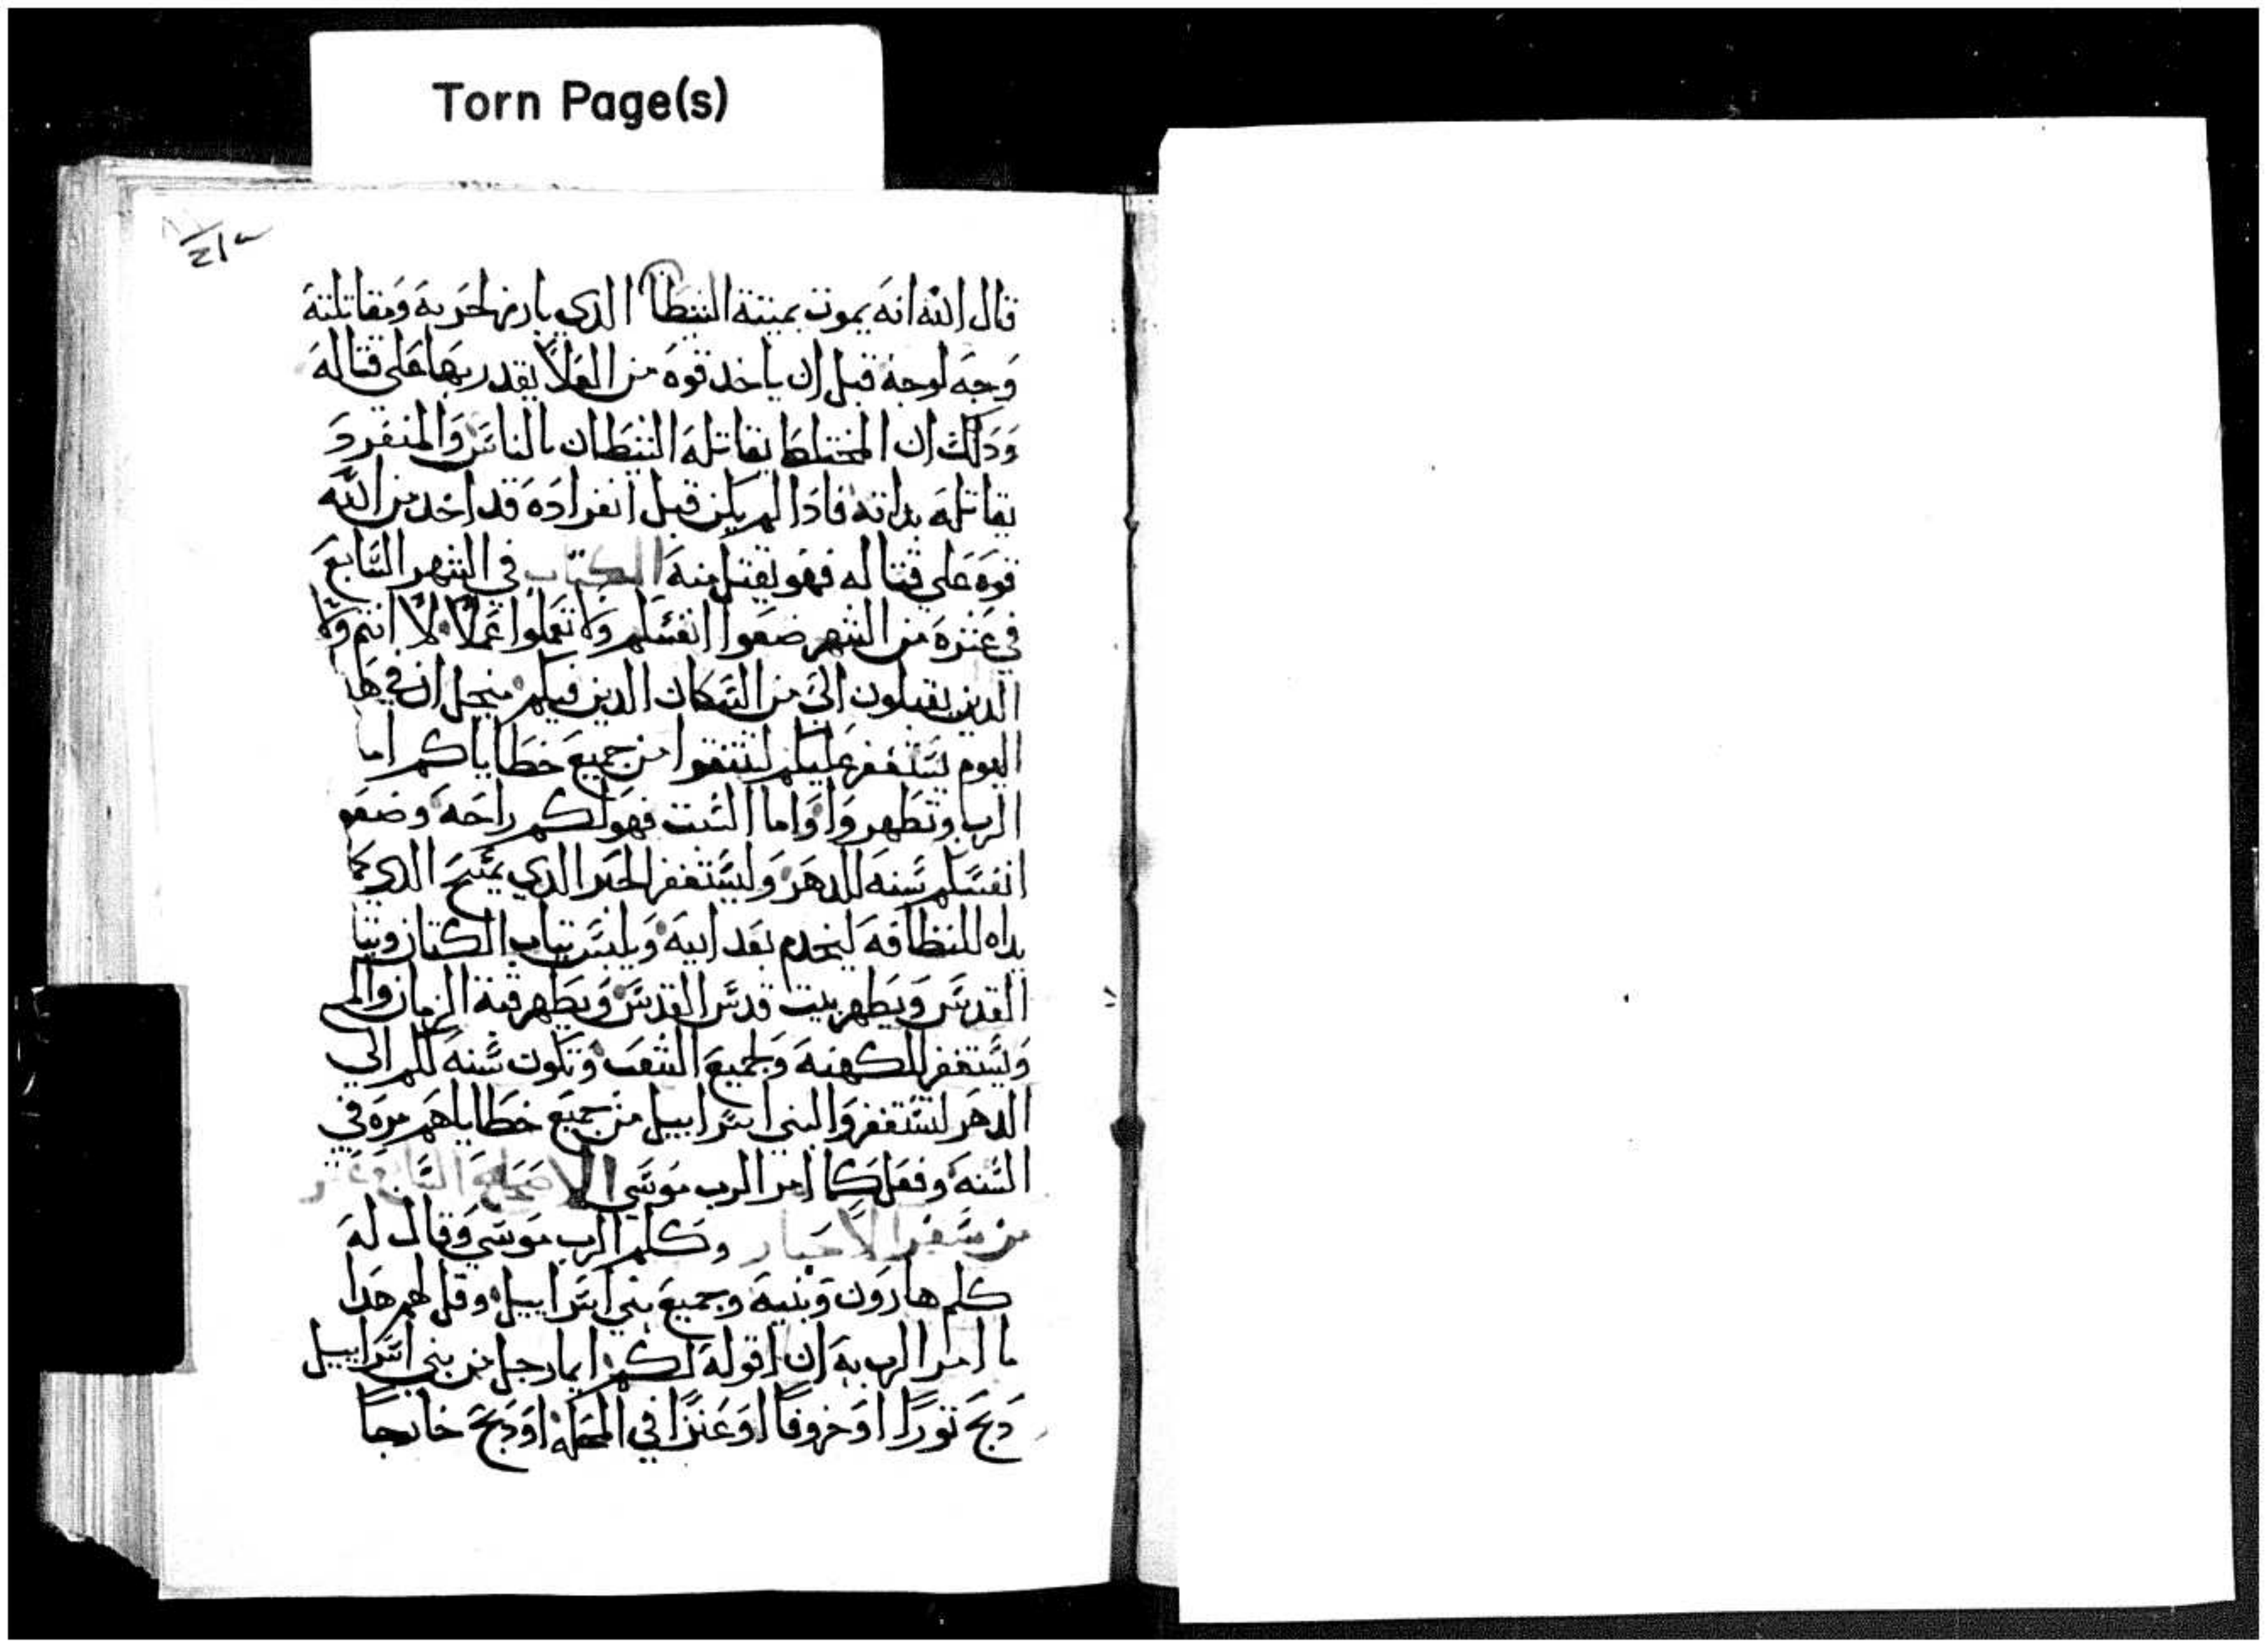 Torn Page(s)
قال الله انه يموت يميته الشيطان الذي بارز لحربه ومقاتلته
وجه لوجه قبل ان ياخد قوه من العلا يقدر بها على قتاله
ودلك ان المختلط يقاتله الشيطان بالناس والمنفرد
يقاتله بداته فادا لم يكن قبل انفراده قد اخد من الله
قوه على قتاله فهو يقتل منه الكتاب في الشهر السابع
في عشره من الشهر ضعوا انفسكم ولا تعملوا عملاً لا انتم ولا
الدين يقبلون الي من السكان الدين فيكم منجل ان في هدا
اليوم يستغفر عليكم لتنقوا من جميع خطاياكم امام
الرب وتطهروا واما السبت فهو لكم راحه وضعو
انفسكم سنه للدهر وليستغفر الحبر الدي يمسح الدي
يداه للنظافه ليخدم بعد ابيه ويلبس تياب الكتان وتيا
القدس ويطهر بيت قدس القدس ويطهر قبة الزمان والمد
ويستغفر للكهنه ولجميع الشعب وتكون سنه لكم الي
الدهر لتستغفروا لبني اسراييل من جميع خطاياهم مره في
السنه وفعل كما امر الرب موسي الاصحاح السابع عشر
من سفر الاحبار وكلم الرب موسي وقال له
كلم هارون وبنيه وجميع بني اسراييل وقل لهم هدا
ما امر الرب به ان اقوله لكم ايما رجل من بني اسراييل
دبح توراً او خروفاً او عنزاً في المحله او دبح خارجاً